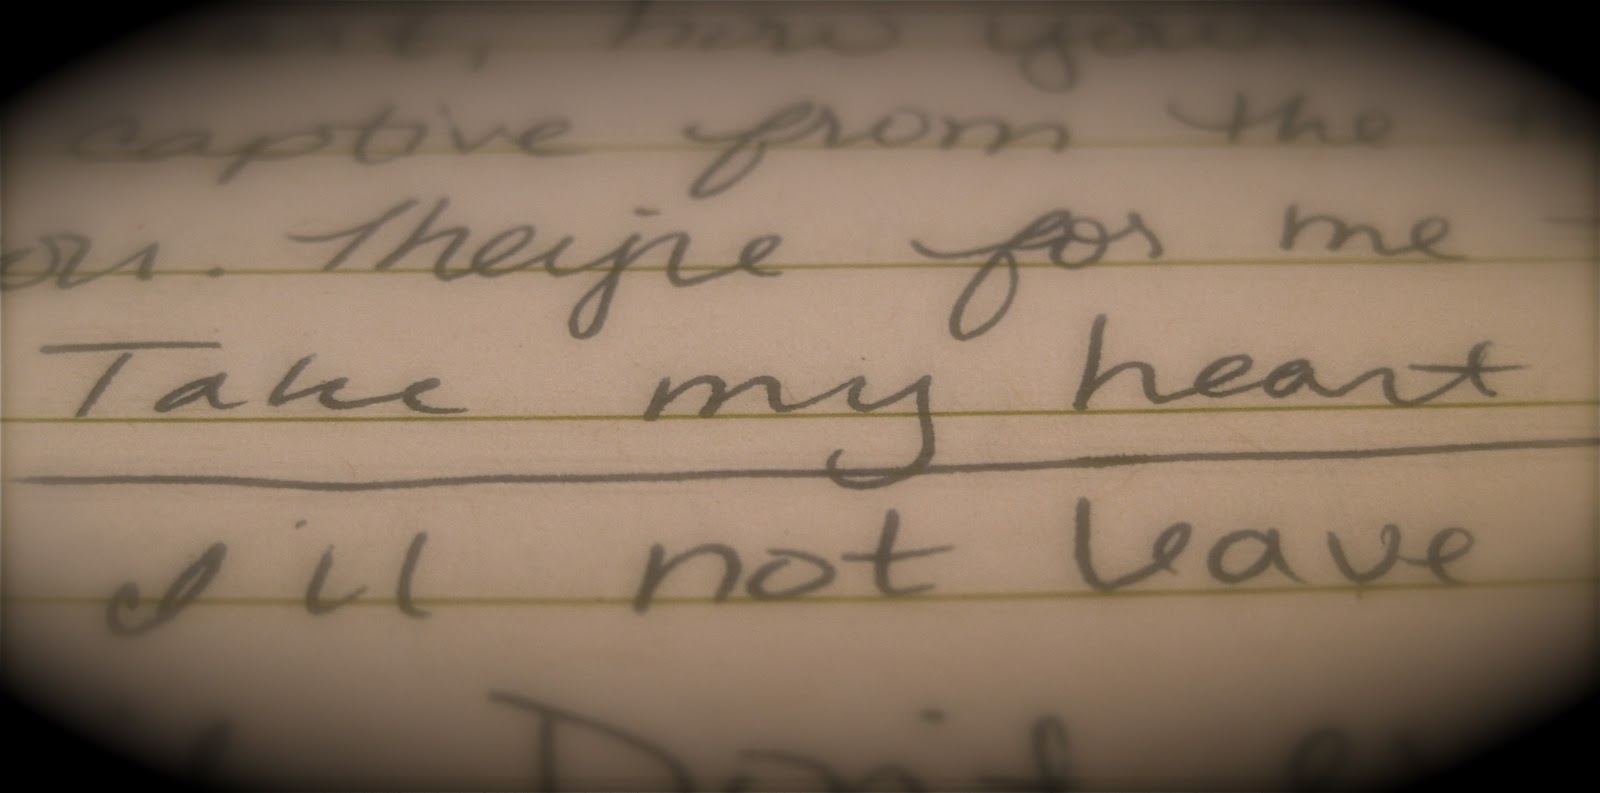 how your
captive from the
They're for me
Take my heart
I'll not leave
Don't